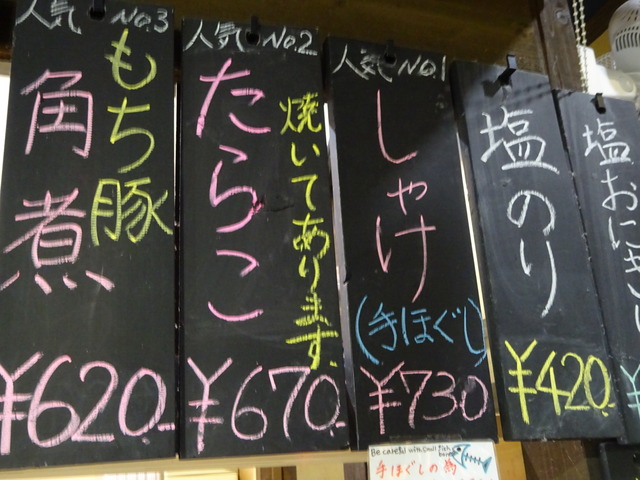 人気 No.3
もち豚
角煮
¥620.-
人気 No.2
焼いてあります
たらこ
¥670.-
人気 No.1
しゃけ
(手ほぐし)
¥730
塩のり
¥420.-
塩おにぎり
¥
Be careful with small fish bones
手ほぐしの為